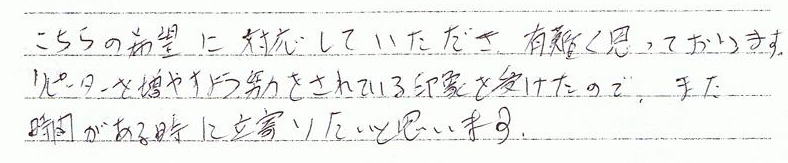 こちらの希望に対応していただき、有難く思っております。
リピーターを増やすよう努力をされている印象を受けたので、また
時間がある時に立寄りたいと思います。